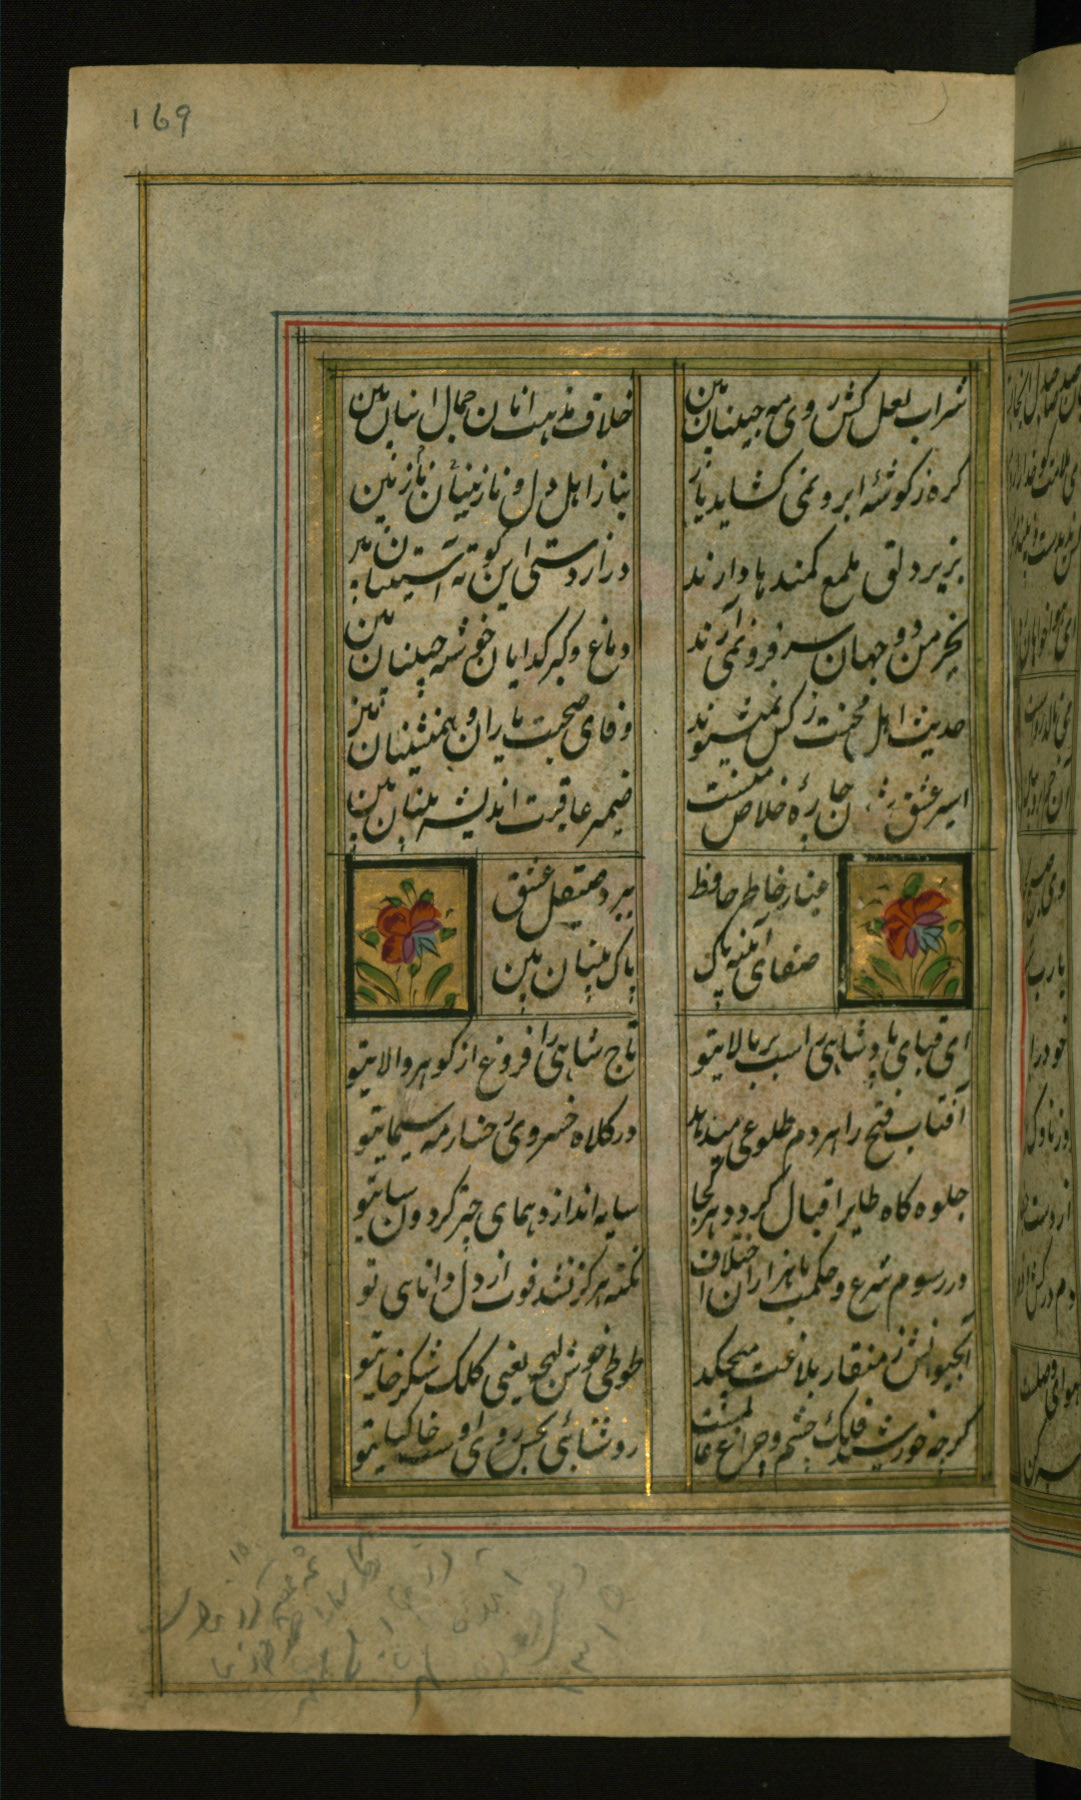 169
شراب لعل کش و روی مه جبینان بین
خلاف مذهب انان جمال اینان بین
گره ز گوشهٔ ابرو نمی گشاید باز
نیاز اهل دل و ناز نازنینان بین
بزیر دلق ملمع کمندها دارند
درازدستی این کوته آستینان بین
بخرمن دو جهان سر فرو نمی آرند
دماغ و کبر گدایان خوشه چینان بین
حدیث اهل محبت ز کس نمیشنوند
وفای صحبت یاران و همنشینان بین
اسیر عشق شدن چارهٔ خلاص منست
ضمیر عاقبت اندیش پیش بینان بین
غبار خاطر حافظ
ببرد صیقل عشق
صفای آینه پاک
پاک بینان بین
ای قبای پادشاهی راست بر بالایتو
تاج شاهی را فروغ از گوهر والایتو
آفتاب فتح را هردم طلوعی میدهد
در کلاه خسروی رخسار مه سیمایتو
جلوه گاه طایر اقبال گردد هر کجا
سایه اندازد همای چتر گردون سایتو
در رسوم شرع و حکمت با هزاران اختلاف
نکته هرگز نشد فوت از دل دانای تو
آبحیوانش ز منقار بلاغت میچکد
طوطی خوش لهجه یعنی کلک شکرخایتو
گرچه خورشید فلک چشم و چراغ عالمست
روشنائی بخش روی اوست خاکپایتو